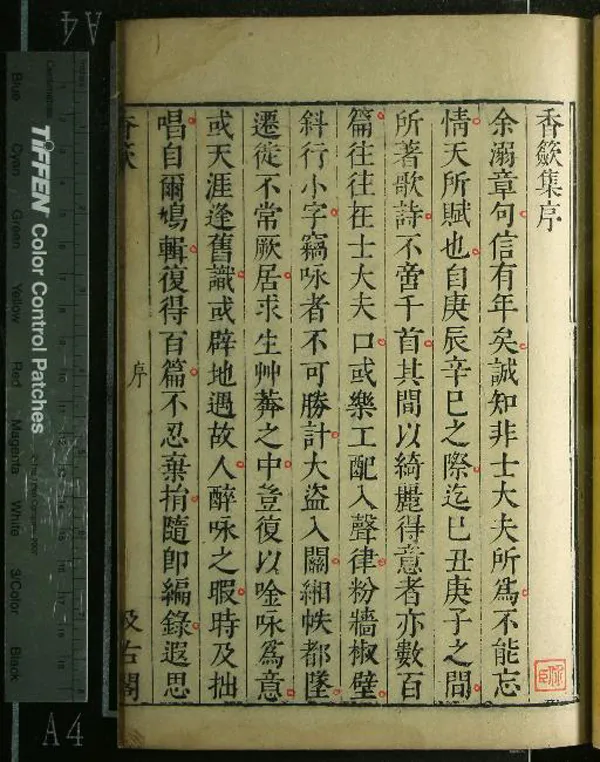 香籢集序
余溺章句信有年矣誠知非士大夫所為不能忘
情天所賦也自庚辰辛巳之際迄巳丑庚子之間
所著歌詩不啻千首其間以綺麗得意者亦數百
篇往往在士大夫口或樂工配入聲律粉牆椒壁
斜行小字竊咏者不可勝計大盜入關緗帙都墜
遷徙不常厥居求生艸莽之中豈復以唫咏為意
或天涯逢舊識或辟地遇故人醉咏之暇時及拙
唱自爾鳩輯復得百篇不忍棄捐隨即編錄遐思
香籢
序
汲古閣
A4
TIFFEN Color Control Patches
Blue
Cyan
Green
Yellow
Red
Magenta
White
3/Color
Black
A4